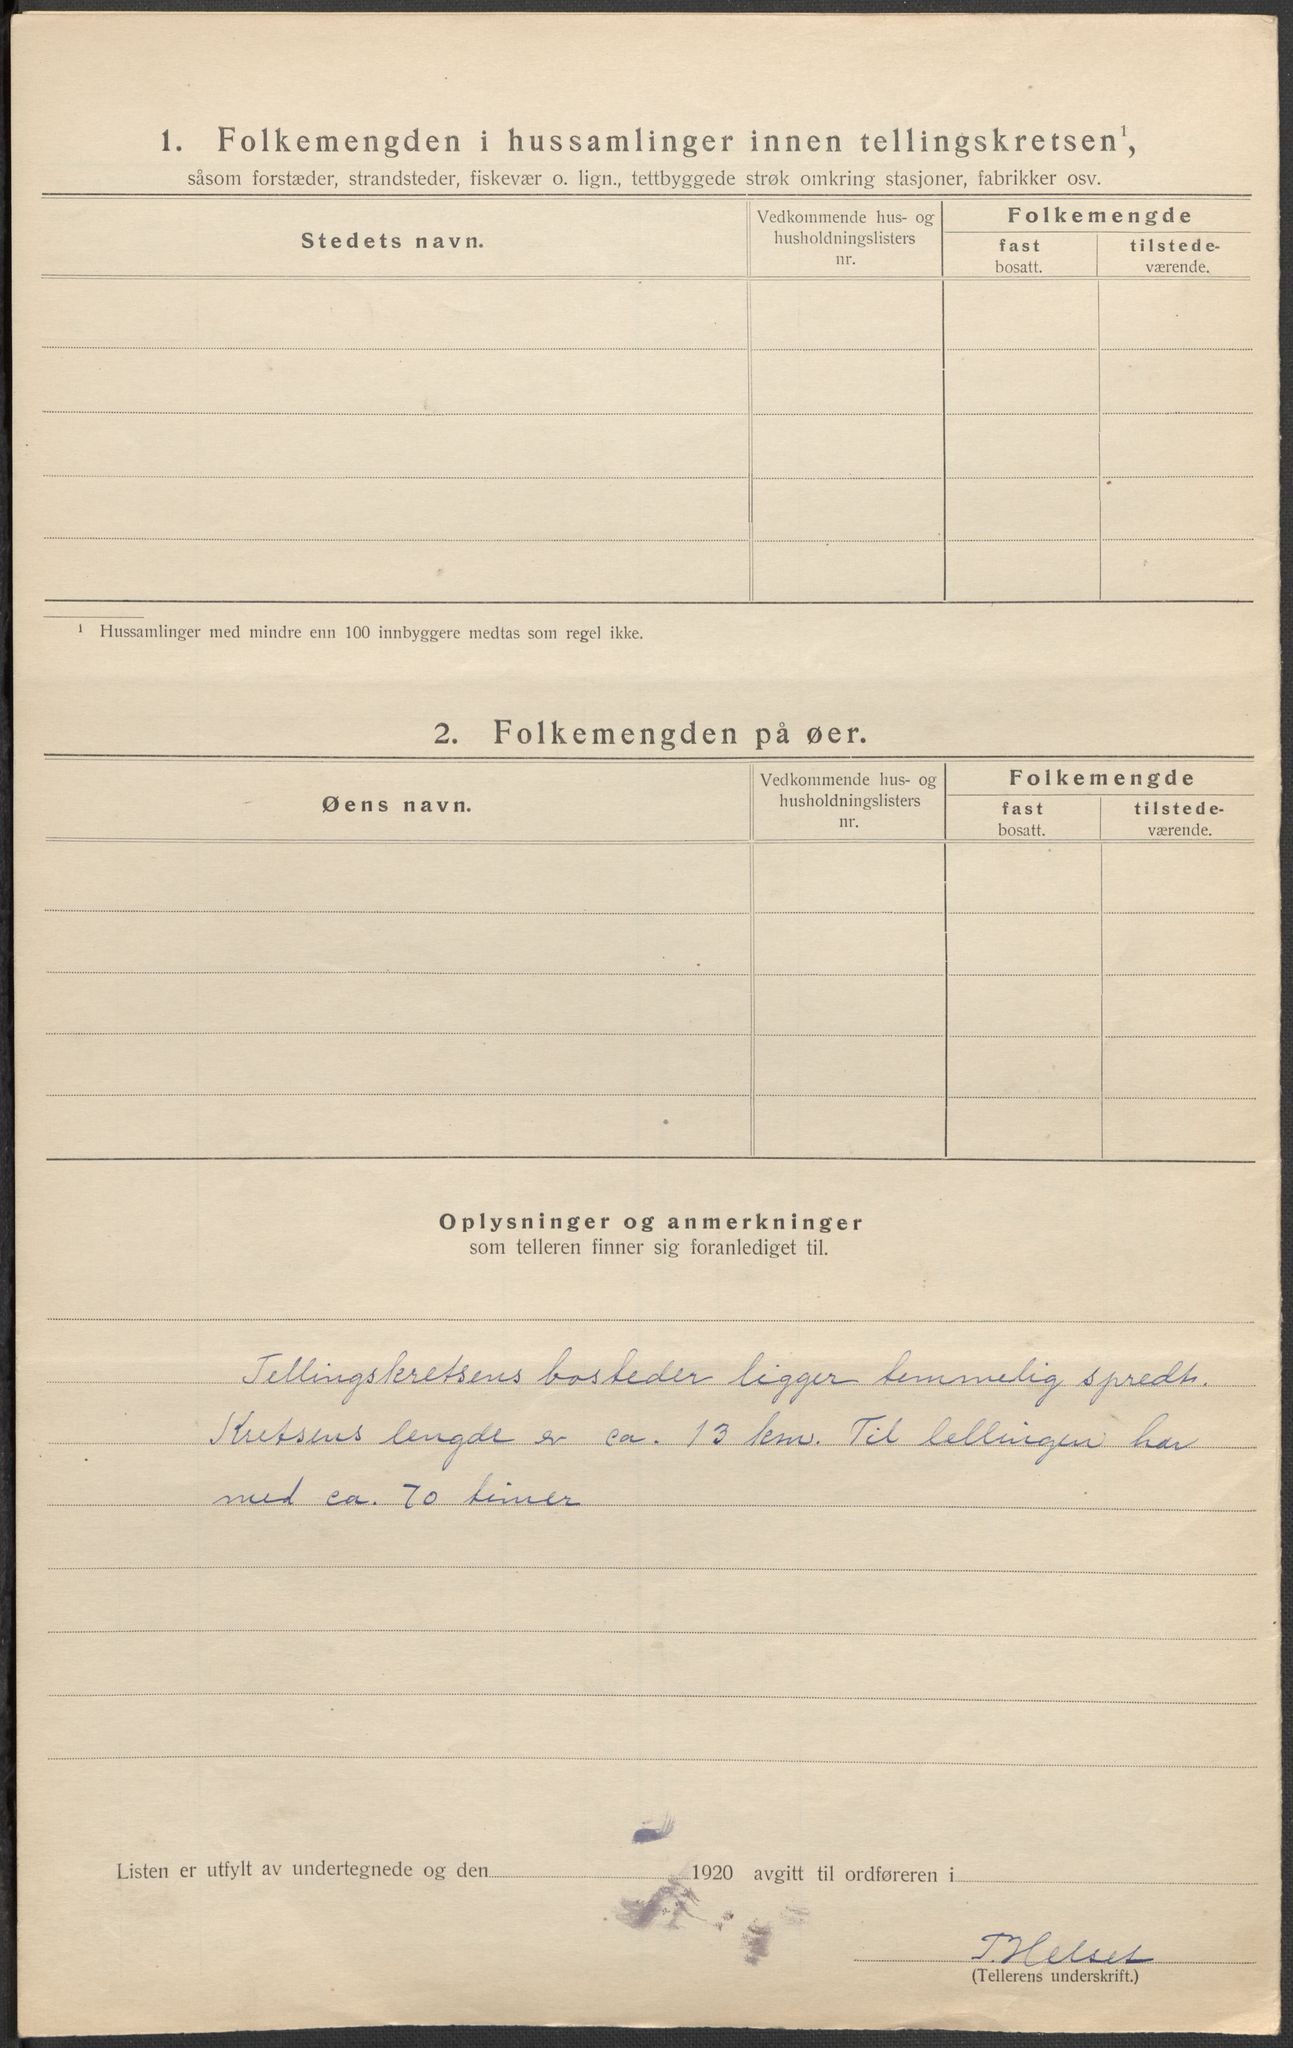 1. Folkemengden i hussamlinger innen tellingskretsen¹,
såsom forstæder, strandsteder, fiskevær o. lign., tettbyggede strøk omkring stasjoner, fabrikker osv.
Stedets navn.
Vedkommende hus- og
husholdningslisters
nr.
Folkemengde
fast
bosatt.
tilstede-
værende.
¹ Hussamlinger med mindre enn 100 innbyggere medtas som regel ikke.
2. Folkemengden på øer.
Øens navn.
Vedkommende hus- og
husholdningslisters
nr.
Folkemengde
fast
bosatt.
tilstede-
værende.
Oplysninger og anmerkninger
som telleren finner sig foranlediget til.
Tellingskretsens bosteder ligger temmelig spredt.
Kretsens lengde er ca. 13 km. Til tellingen har
med ca. 70 timer
Listen er utfylt av undertegnede og den 1920 avgitt til ordføreren i
T. Helset
(Tellerens underskrift.)